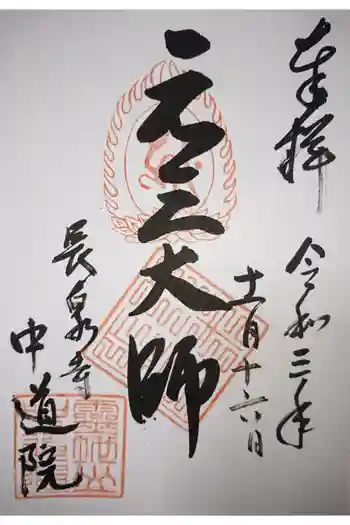 奉拝
令和三年
十一月十六日
元三大師
長泉寺
中道院